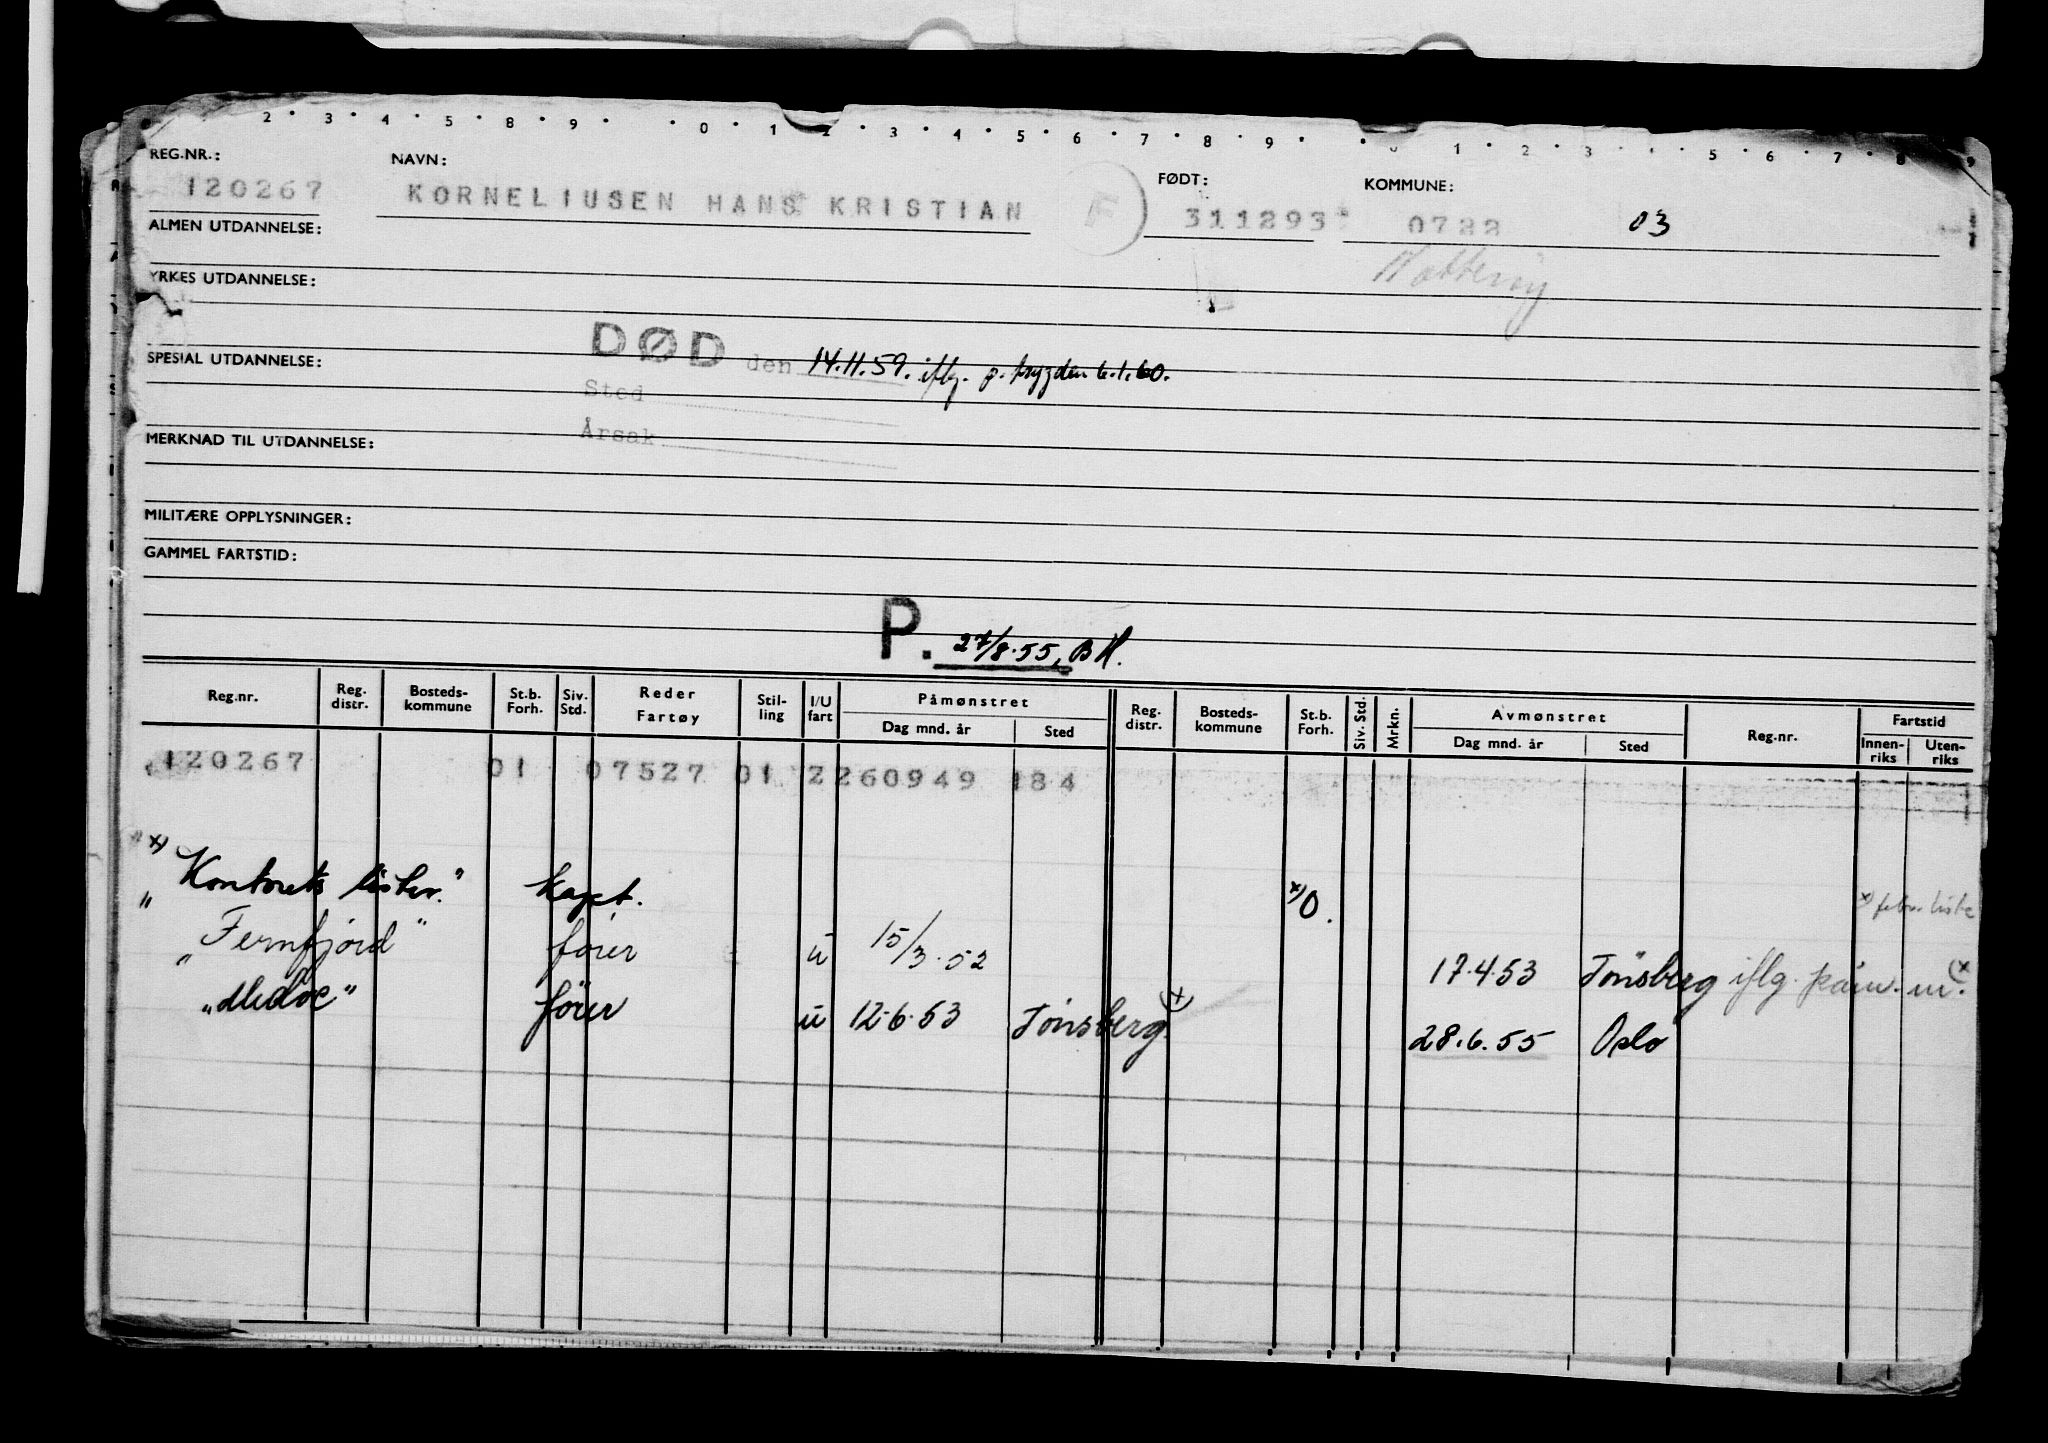 2 · 3 · 4 · 5 · 8 · 9 · · 0 · 1 · 2 · 3 · 4 · 5 · 6 · 7 · 8 · 9 · · 0 · 1 · 2 · 3 · 4 · 5 · 6 · 7 · 8 · 9
REG.NR.: NAVN: FØDT: KOMMUNE:
120267 KORNELIUSEN HANS KRISTIAN F 311293 0722 03
ALMEN UTDANNELSE:
Nøtterøy
YRKES UTDANNELSE:
DØD den 14.11.59. iflg. p. trygden 6.1.60.
SPESIAL UTDANNELSE:
Sted
Årsak
MERKNAD TIL UTDANNELSE:
MILITÆRE OPPLYSNINGER:
GAMMEL FARTSTID:
P. 27/8.55, BH.
Reg.nr. Reg. distr. Bosteds-kommune St.b. Forh. Siv. Std. Reder Fartøy Stil-ling I/U fart Påmønstret Dag mnd. år Sted Reg. distr. Bosteds-kommune St.b. Forh. Siv. Std. Mrkn. Avmønstret Dag mnd. år Sted Reg.nr. Fartstid Innen-riks Uten-riks
120267 01 07527 01 2 260949 184
x) "Kontorets lister." kapt. x) O. x) febr. liste
"Fernfjord" fører u 15/3.52 17.4.53 Tønsberg iflg. påm. m. (x
fører u 12.6.53 Tønsberg. x) 28.6.55 Oslo